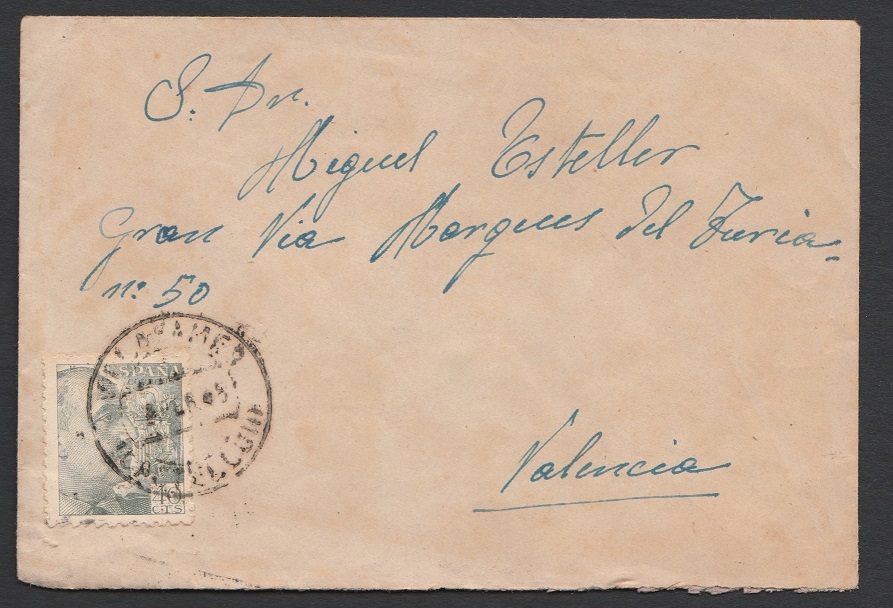 S. Dr.
Miguel Esteller
Gran Via Marques del Turia
nº 50
VILLAFAMES
ESPAÑA
40
CTS
Valencia